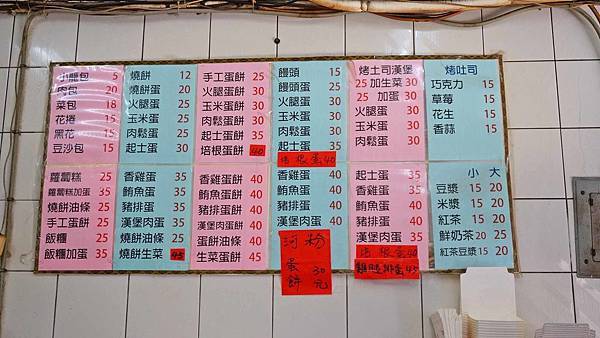 小籠包 5
肉包 20
菜包 18
花捲 15
黑花 15
豆沙包 15
燒餅 12
燒餅蛋 20
火腿蛋 25
玉米蛋 25
肉鬆蛋 25
起士蛋 30
手工蛋餅 25
火腿蛋餅 30
玉米蛋餅 30
肉鬆蛋餅 30
起士蛋餅 35
培根蛋餅 40
饅頭 15
饅頭蛋 25
火腿蛋 30
玉米蛋 30
肉鬆蛋 30
起士蛋 35
培根蛋 40
烤土司漢堡
25 加生菜 30
25 加蛋 30
火腿蛋 30
玉米蛋 30
肉鬆蛋 30
烤吐司
巧克力 15
草莓 15
花生 15
香蒜 15
蘿蔔糕 25
蘿蔔糕加蛋 35
燒餅油條 25
手工蛋餅 25
飯糰 25
飯糰加蛋 35
香雞蛋 35
鮪魚蛋 35
豬排蛋 35
漢堡肉蛋 35
燒餅油條 25
燒餅生菜 45
香雞蛋餅 40
鮪魚蛋餅 40
豬排蛋餅 40
漢堡肉蛋餅 40
蛋餅油條 40
生菜蛋餅 40
香雞蛋 40
鮪魚蛋 40
豬排蛋 40
漢堡肉蛋 40
河粉
蛋餅 30元
起士蛋 35
香雞蛋 40
鮪魚蛋 40
豬排蛋 40
漢堡肉蛋 40
培根蛋 40
雞腿排蛋 45
小 大
豆漿 15 20
米漿 15 20
紅茶 15 20
鮮奶茶 20 25
紅茶豆漿 15 20